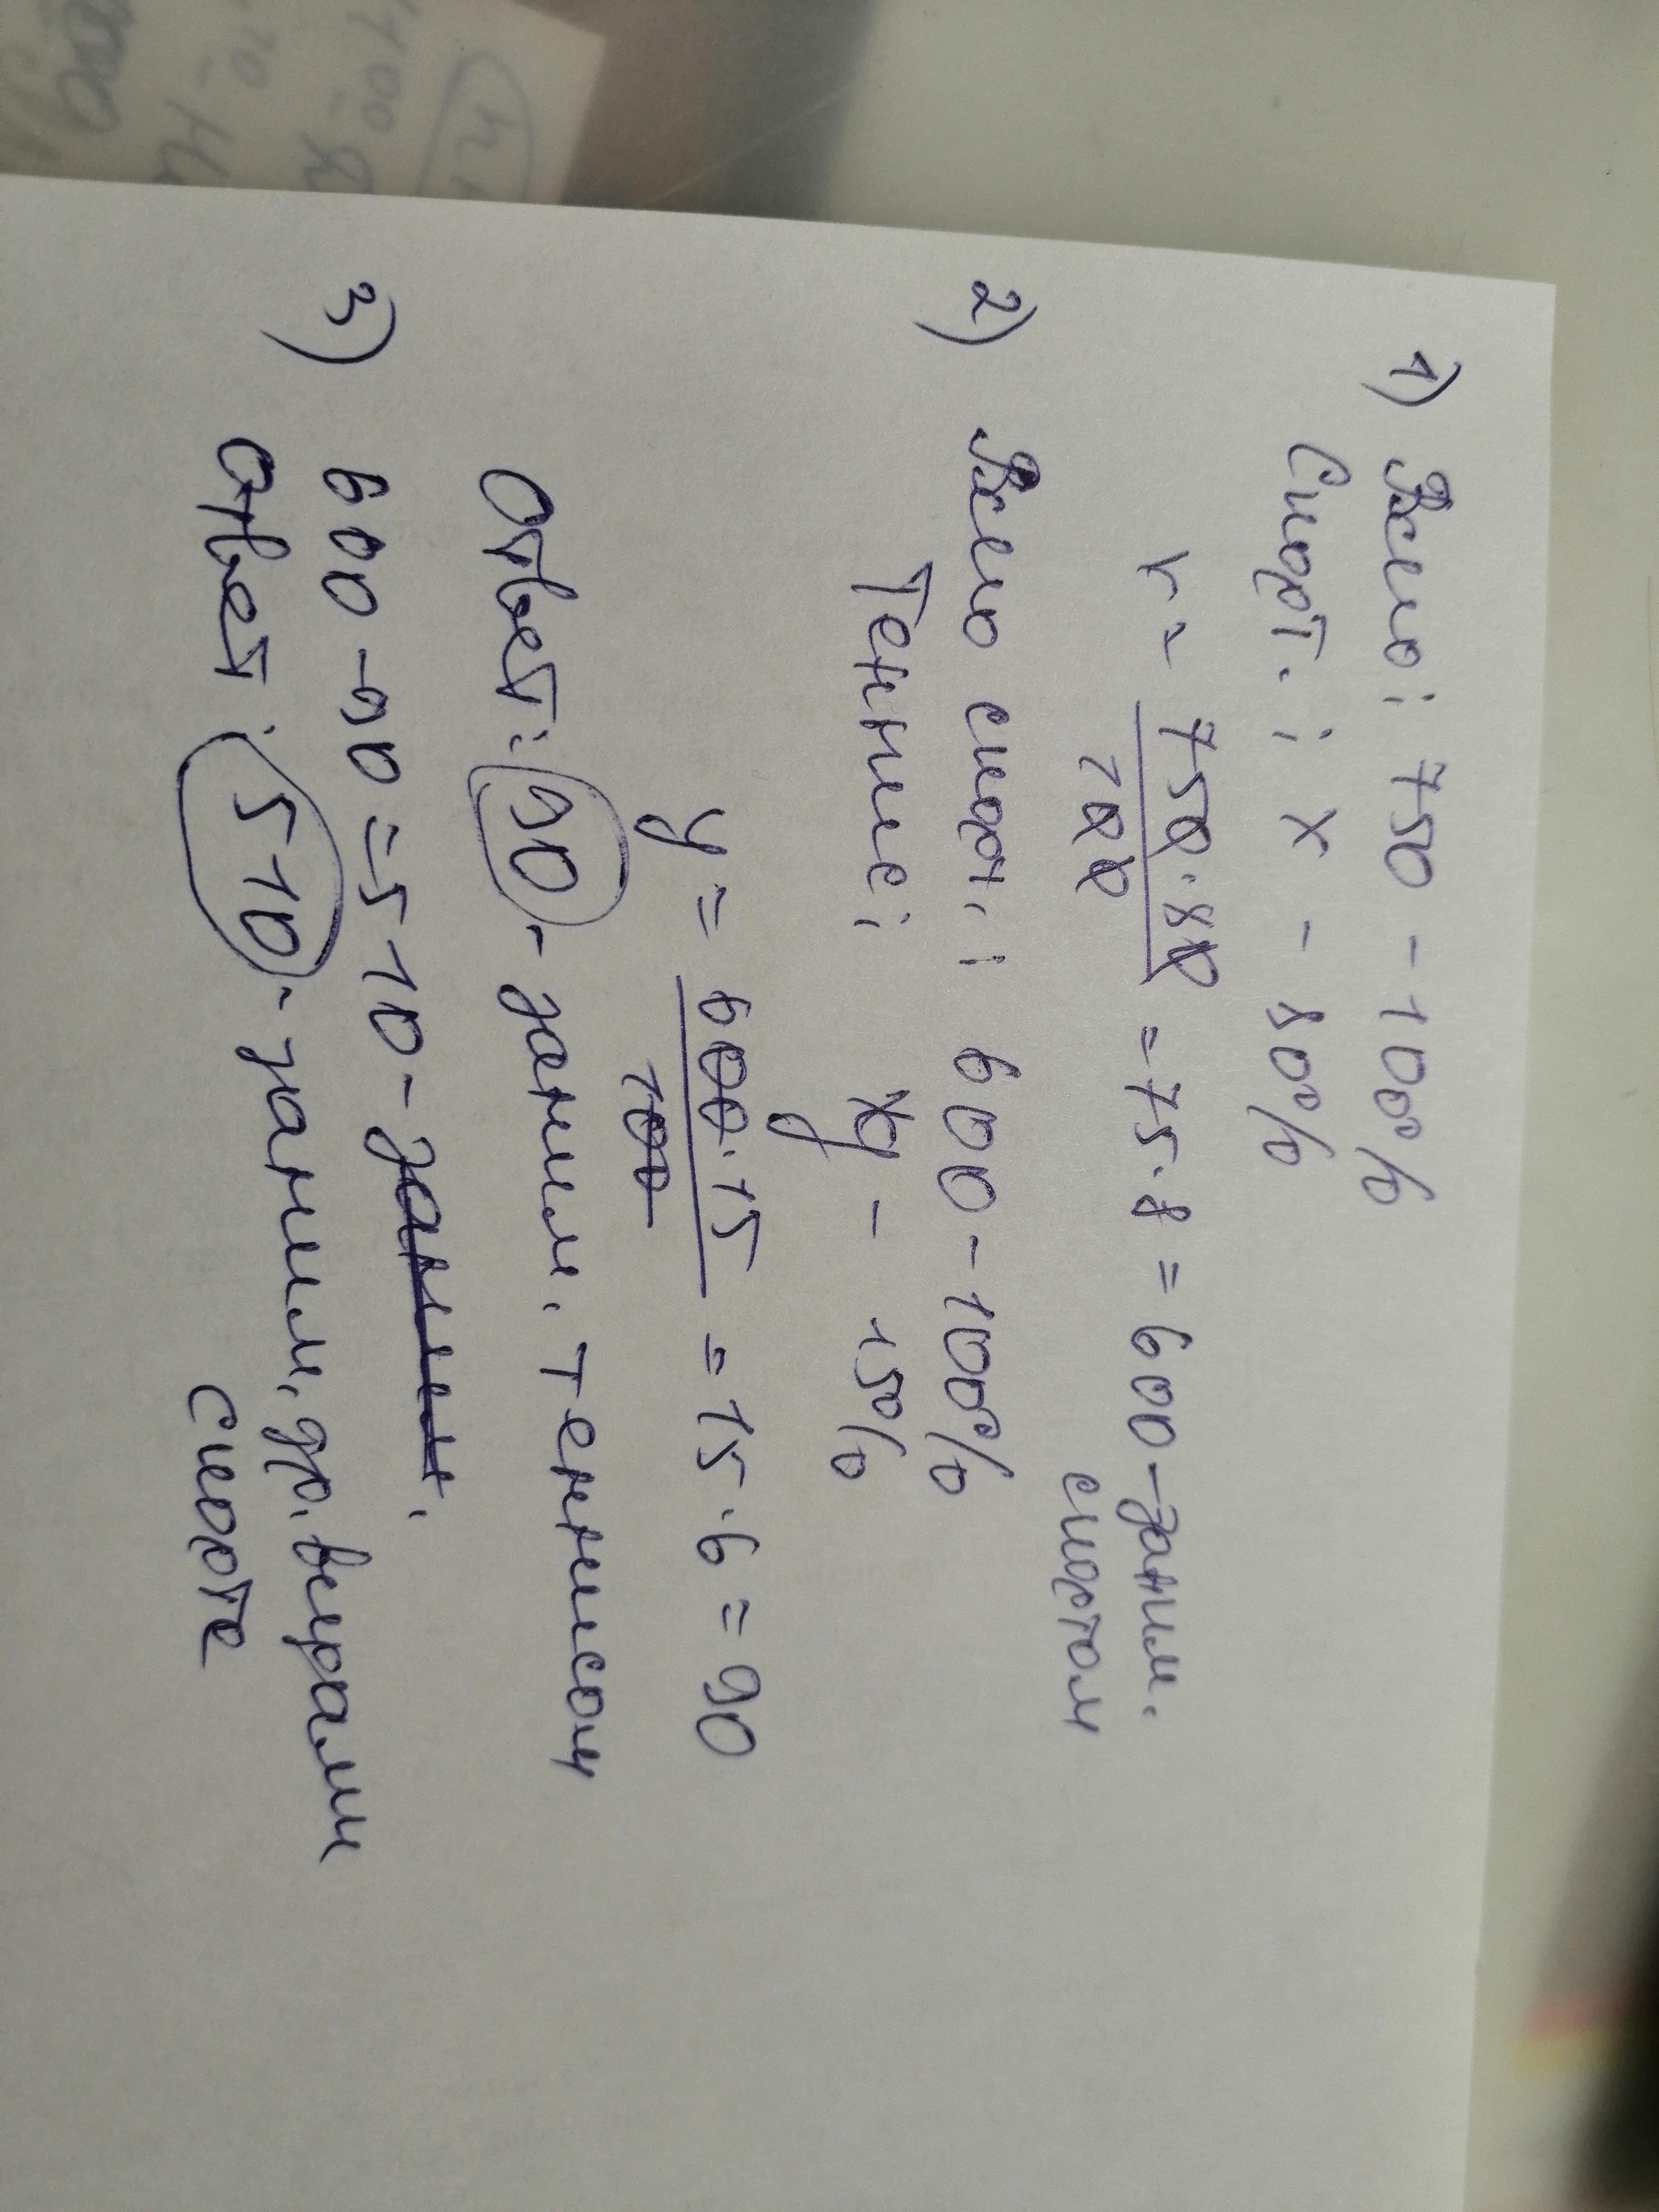 1) Всего: 750 - 100%
Спорт.: х - 80%
х = 750·80 / 100 = 75·8 = 600 - заним.
спортом
2) Всего спорт.: 600 - 100%
Теннис: у - 15%
у = 600·15 / 100 = 15·6 = 90
Ответ: 90 - заним. теннисом
3) 600 - 90 = 510 - заним.
Ответ: 510 - заним. др. видами
спорта